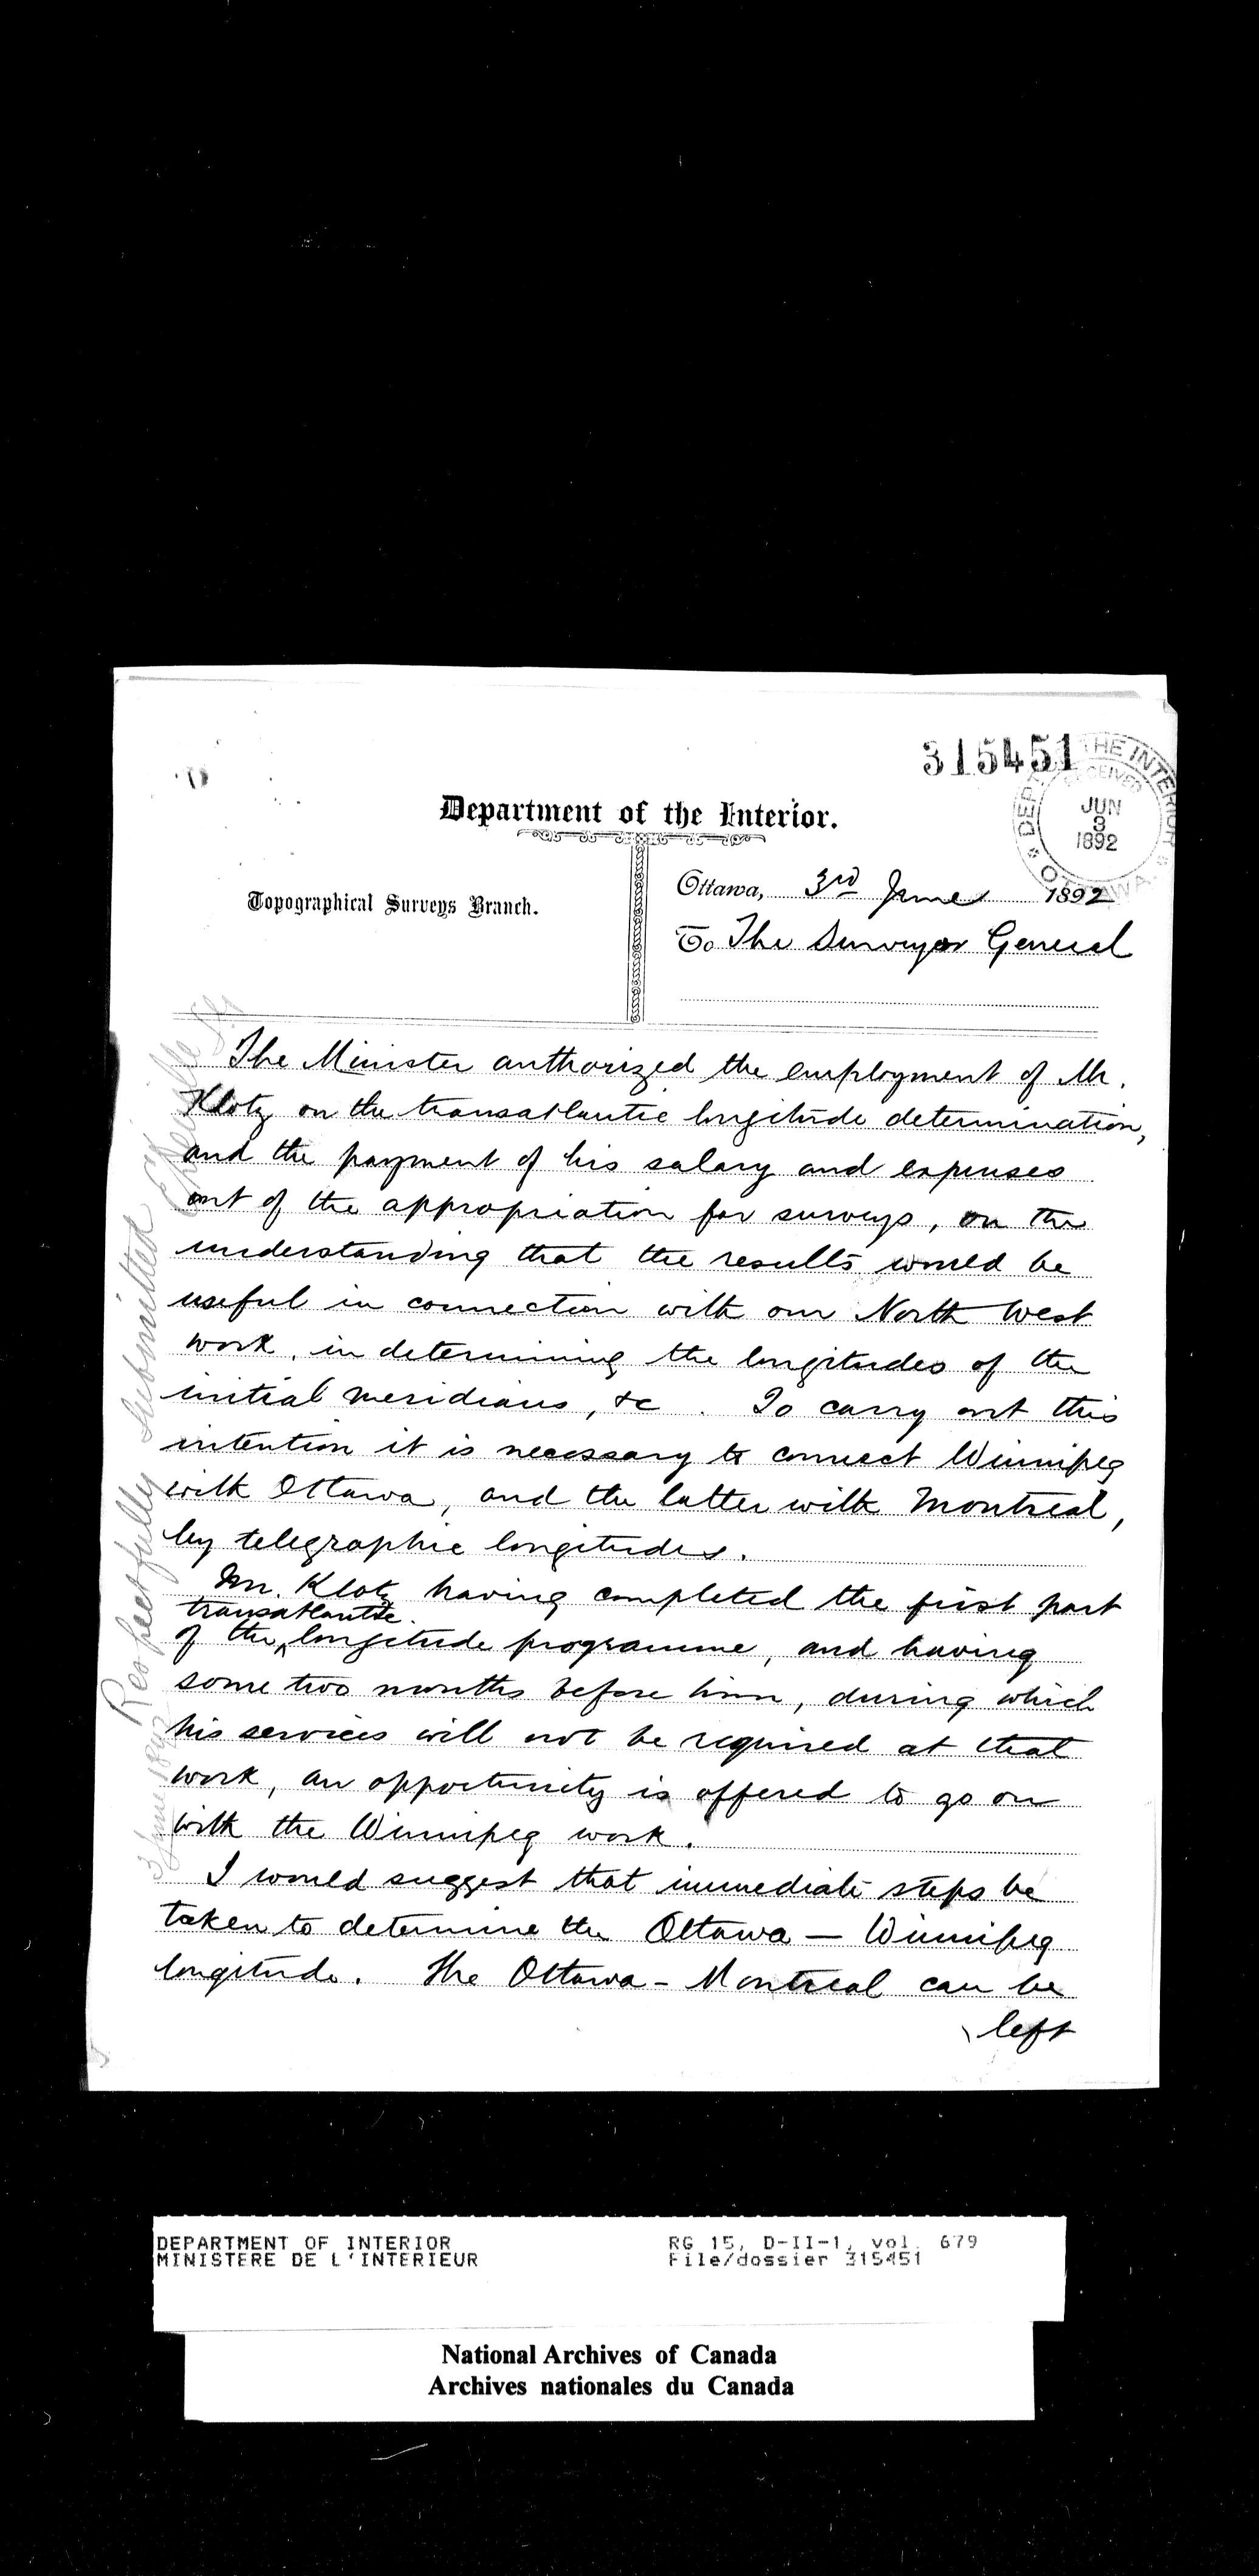 315451
DEPT. OF THE INTERIOR
RECEIVED
JUN
3
1892
OTTAWA.
Department of the Interior.
Topographical Surveys Branch.
Ottawa, 3rd June 1892
To The Surveyor General
The Minister authorized the employment of Mr.
Klotz on the transatlantic longitude determination,
and the payment of his salary and expenses
out of the appropriation for surveys, on the
understanding that the results would be
useful in connection with our North West
work, in determining the longitudes of the
initial meridians, &c. To carry out this
intention it is necessary to connect Winnipeg
with Ottawa, and the latter with Montreal,
by telegraphic longitudes.
Mr. Klotz having completed the first part
transatlantic
of the longitude programme, and having
some two months before him, during which
his services will not be required at that
work, an opportunity is offered to go on
with the Winnipeg work.
I would suggest that immediate steps be
taken to determine the Ottawa — Winnipeg
longitude. The Ottawa - Montreal can be
left
Respectfully submitted
3 June 1892
DEPARTMENT OF INTERIOR
MINISTERE DE L'INTERIEUR
RG 15, D-II-1, vol. 679
File/dossier 315451
National Archives of Canada
Archives nationales du Canada